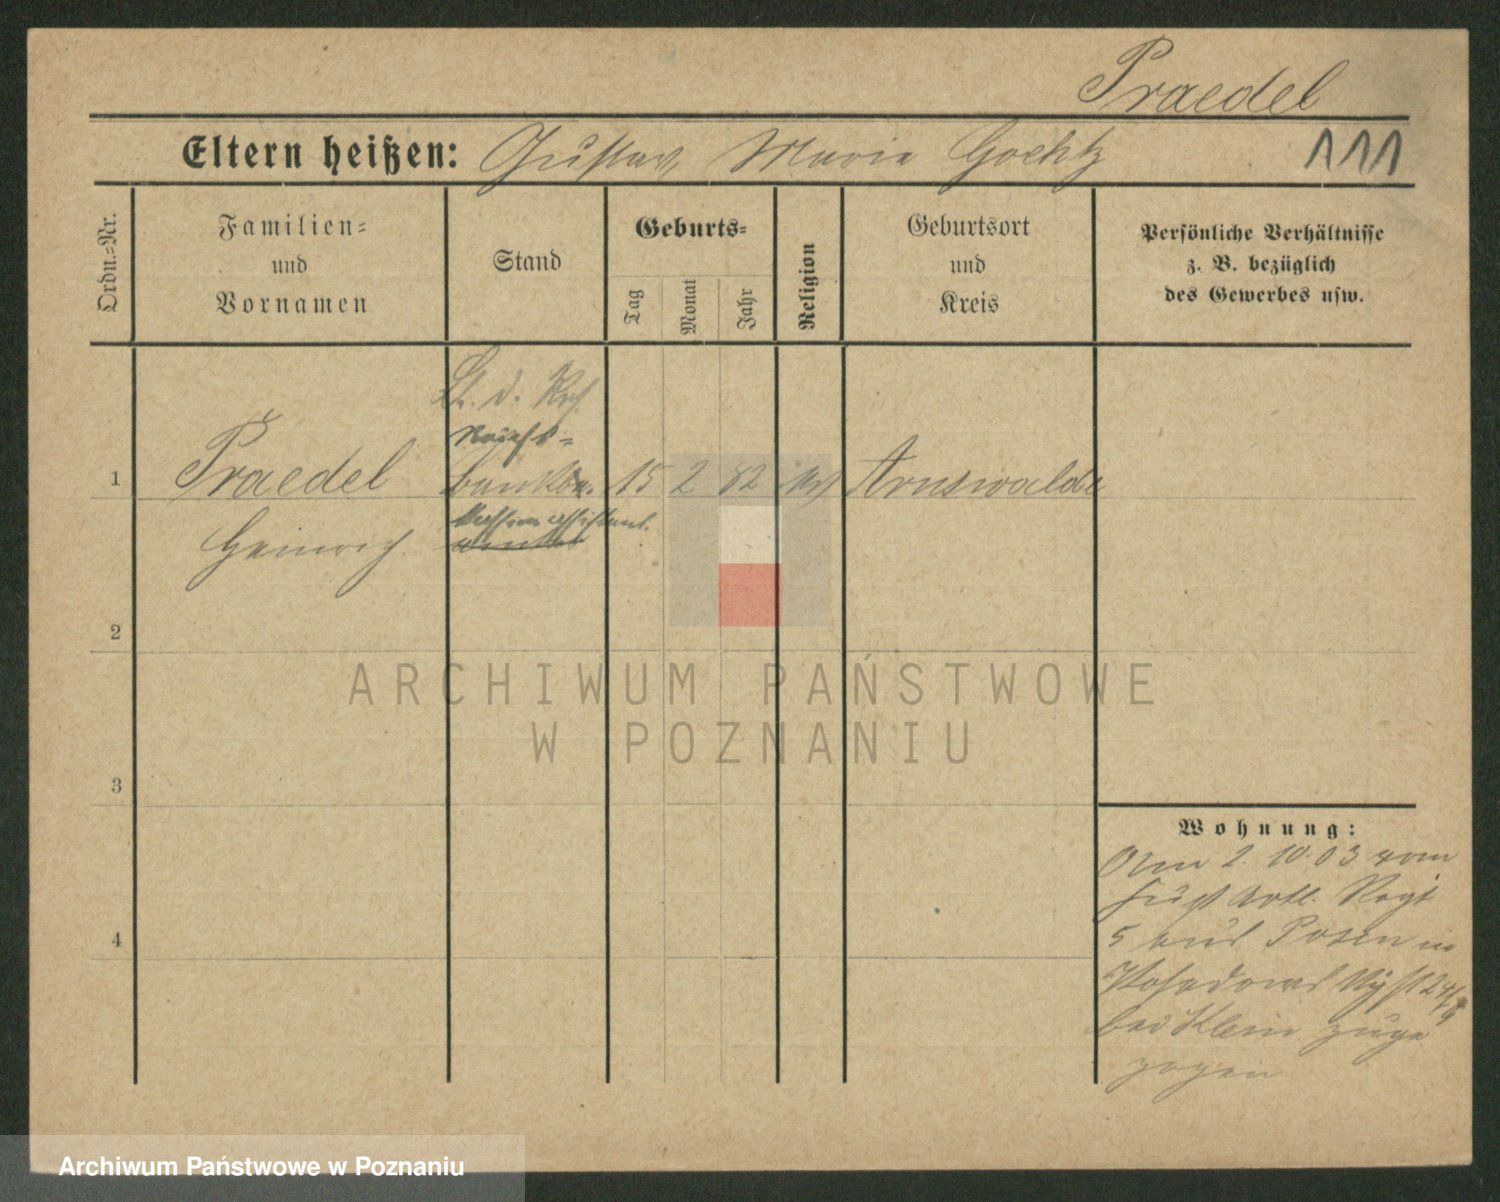 Praedel
Eltern heißen: Gustav Marie Goehtz
111
Ordn.-Nr.
Familien-
und
Vornamen
Stand
Geburts-
Tag
Monat
Jahr
Religion
Geburtsort
und
Kreis
Persönliche Verhältnisse
z. B. bezüglich
des Gewerbes usw.
Lt. d. Res.
Reichs-
1 Praedel bank 15 2 82 ev Arnswalde
Heinrich assistent.
2
3
4
Wohnung:
Am 2. 10. 03 vom
Fuß Artl. Regt
5 aus Posen in
bei Klein zuge
zogen
ARCHIWUM PAŃSTWOWE
W POZNANIU
Archiwum Państwowe w Poznaniu